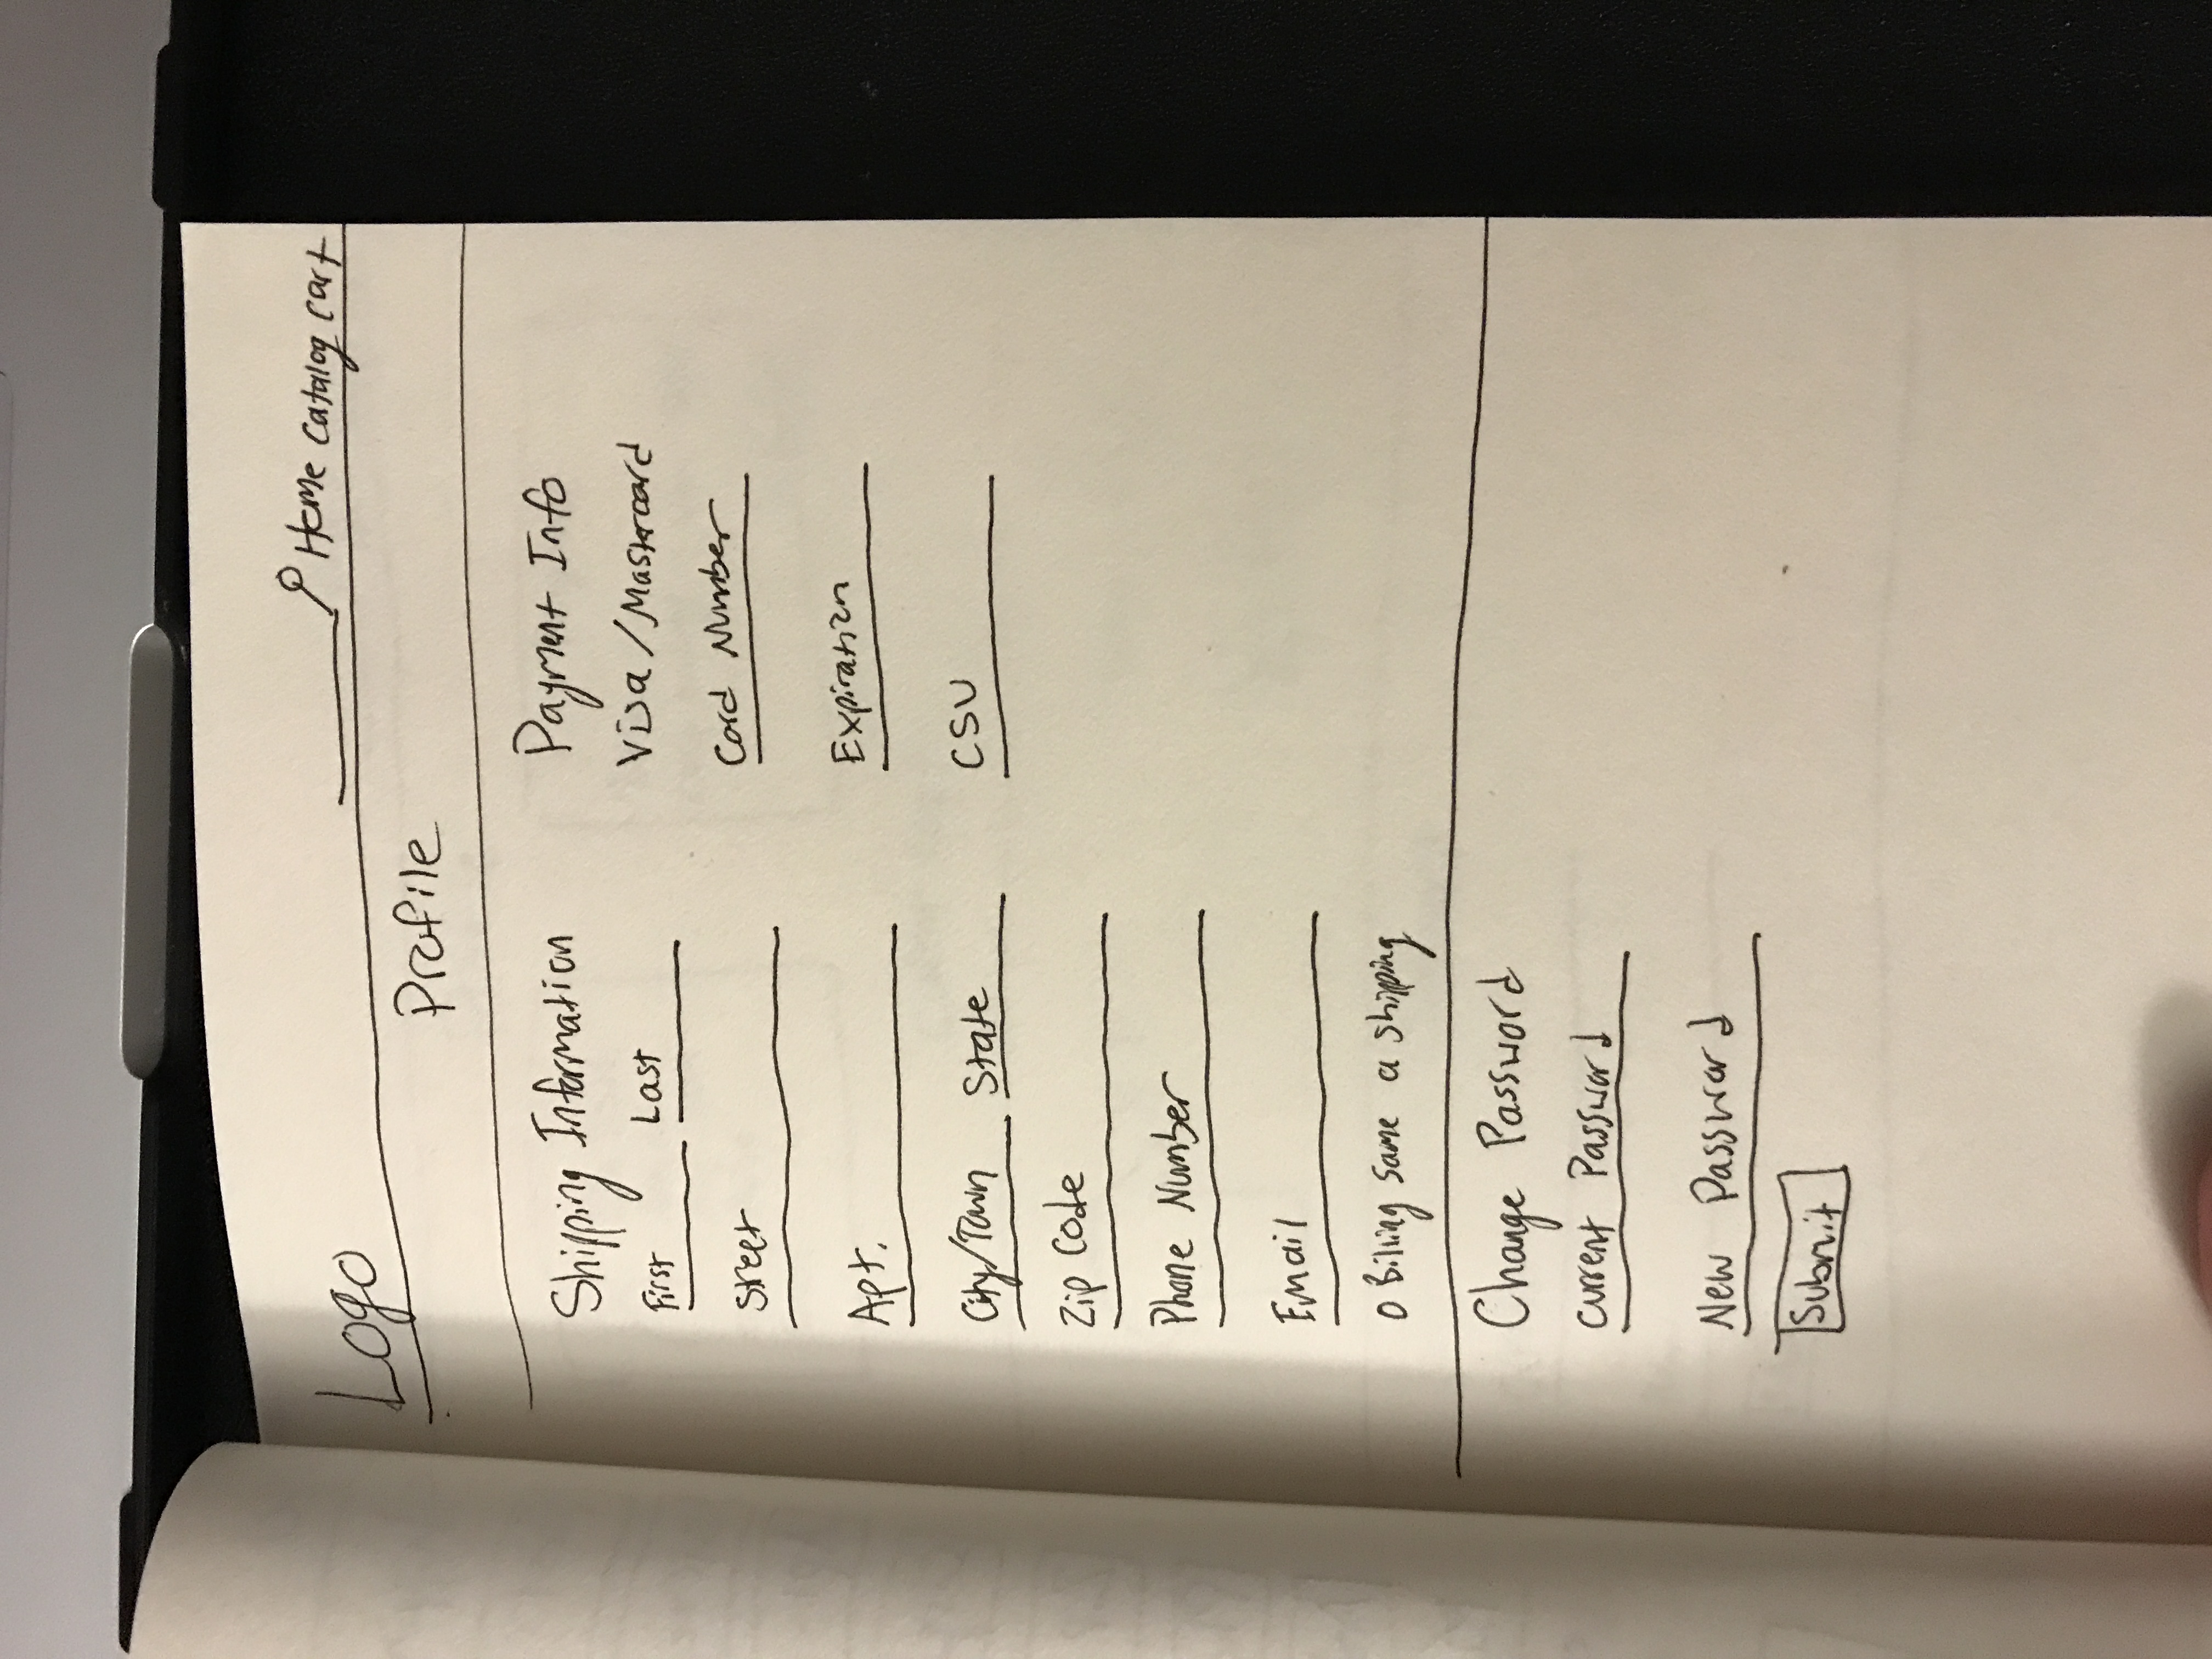 Logo Home Catalog Cart
Profile
Shipping Information
First Last
Street
Apt.
City/Town State
Zip Code
Phone Number
Email
O Billing Same a Shipping
Payment Info
Visa/Mastercard
Card Number
Expiration
CSV
Change Password
Current Password
New Password
Submit